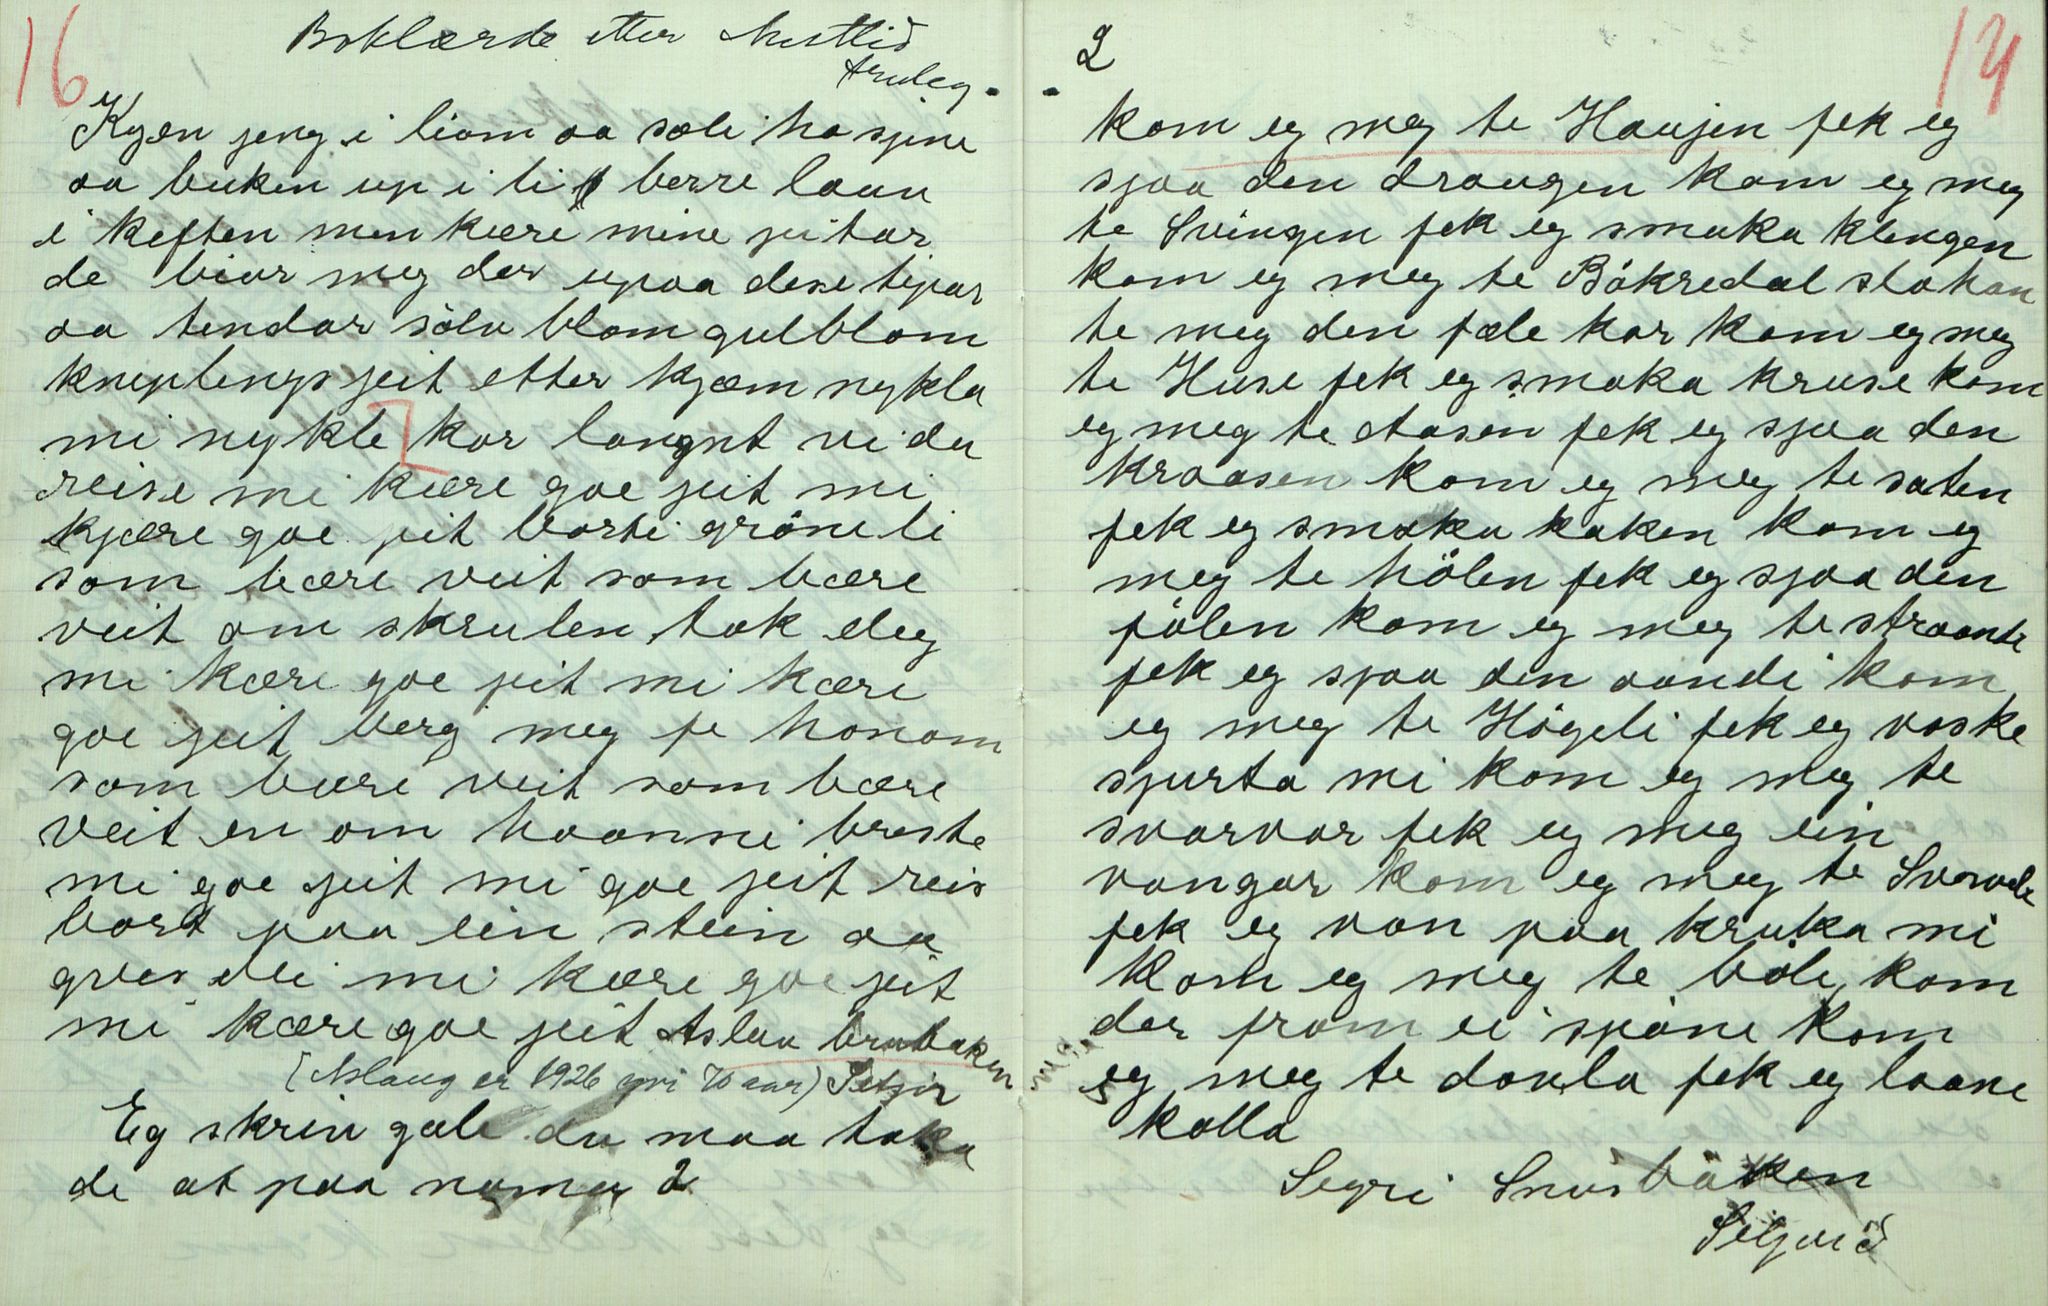 16
Boklærde etter Mestlid
truleg.
Kyæn jeng i liom aa sæli ho sjine
aa buken up i li berre laau
i keften men kære mine jeitar
de biar meg der upaa dese tipar
aa tendar sölv blom gulblom
kniplings jeit etter kjæm nykla
mi nykle kor langnt vi du
reise mi kære goe jeit mi
kjære goe jeit borti gröne li
som bære veit som bære
veit om skrulen tok deg
mi kære goe jeit mi kære
goe jeit berg meg fe honom
som bære veit som bære
veit en om haanni breste
mi goe jeit mi goe jeit reis
bort paa ein stein aa
græs dei mi kære goe jeit
mi kære goe jeit Aslau brubaken
(Aslaug er 1926 yvi 70 aar)
Eg skrin gale du maa taka
de at paa numer 2
2
14
kom eg meg te Haujen fek eg
sjaa den draugen kom eg meg
te Svingen fek eg smaka klengen
kom eg meg te Bökredal sla han
te meg den fæle kar kom eg meg
te Huse fek eg smaka kruse kom
eg meg te Aasen fek eg sjaa den
kraasen kom eg meg te saten
fek eg smaka kaken kom eg
meg te hölen fek eg sjaa den
fölen kom eg meg te straande
fek eg sjaa den aandi kom
eg meg te Högeli fek eg vaske
spurta mi kom eg meg te
svarvar fek eg meg ein
vangar kom eg meg te
fek eg von paa kruka mi
kom eg meg te böli kom
der fram ei spöne kom
eg meg te daula fek eg laane
kolla
Segri Snusbåken